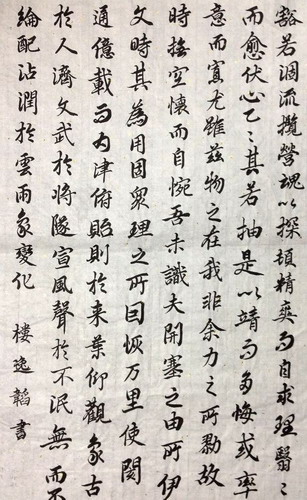 豁若涸流攬營魂以探頓精爽而自求理翳〻
而愈伏心乙〻其若抽是以靖而多悔或率
意而寡尤雖兹物之在我非余力之所勠故
時撫空懷而自惋吾未識夫開塞之由所伊
文時其為用固衆理之所因恢万里使閡
通億載而内津俯貽則於来葉仰觀象古
於人濟文武於將隊宣風聲於不泯無而不
綸配沾潤於雲雨象變化 樓逸韜書